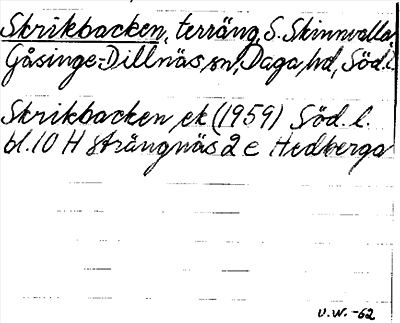 Skrikbacken, terräng, S. Skinnvalla,
Gåsinge-Dillnäs, sn, Daga, hd, Söd. l.
Skrikbacken, ek (1959) Söd. l.
bl. 10 H Strängnäs 2 e Hedberga
U.W. -62